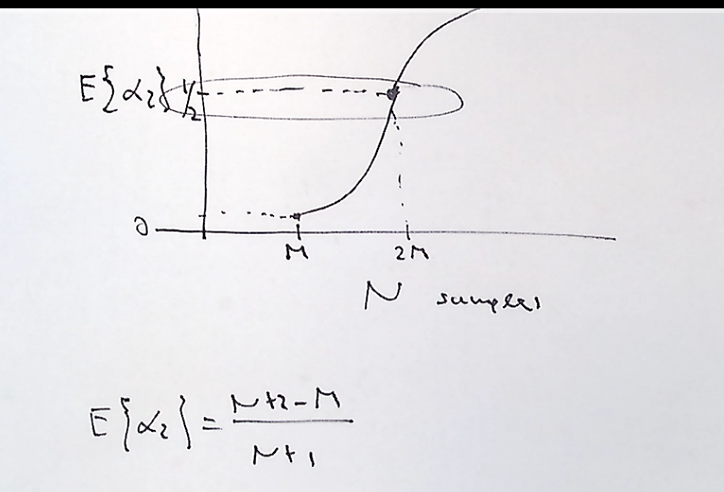 E{α₂} 1/2
0
M 2M
N samples
E{α₂} = N+2-M / N+1